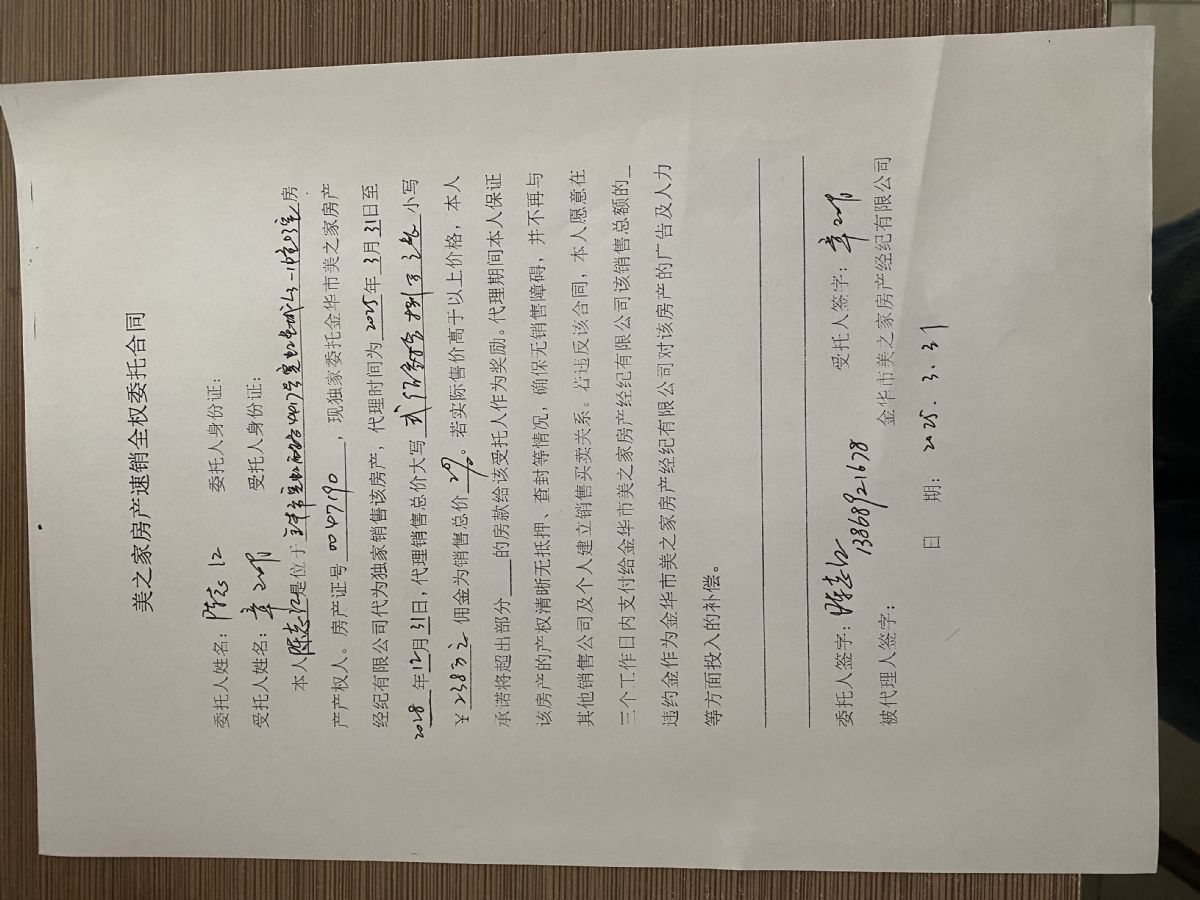 美之家房产速销全权委托合同
委托人姓名：陈志江 委托人身份证：
受托人姓名：章 受托人身份证：
本人陈志江是位于 房
产产权人。房产证号 0047190 ，现独家委托金华市美之家房产
经纪有限公司代为独家销售该房产，代理时间为 2025 年 3 月 31 日至
2028 年 12 月 31 日，代理销售总价大写 小写
￥238万元 佣金为销售总价 2% 。若实际售价高于以上价格，本人
承诺将超出部分____的房款给该受托人作为奖励。代理期间本人保证
该房产的产权清晰无抵押、查封等情况，确保无销售障碍，并不再与
其他销售公司及个人建立销售买卖关系。若违反该合同，本人愿意在
三个工作日内支付给金华市美之家房产经纪有限公司该销售总额的_
违约金作为金华市美之家房产经纪有限公司对该房产的广告及人力
等方面投入的补偿。
委托人签字：陈志江 受托人签字：章
13868921678
被代理人签字： 金华市美之家房产经纪有限公司
日 期：2025.3.31